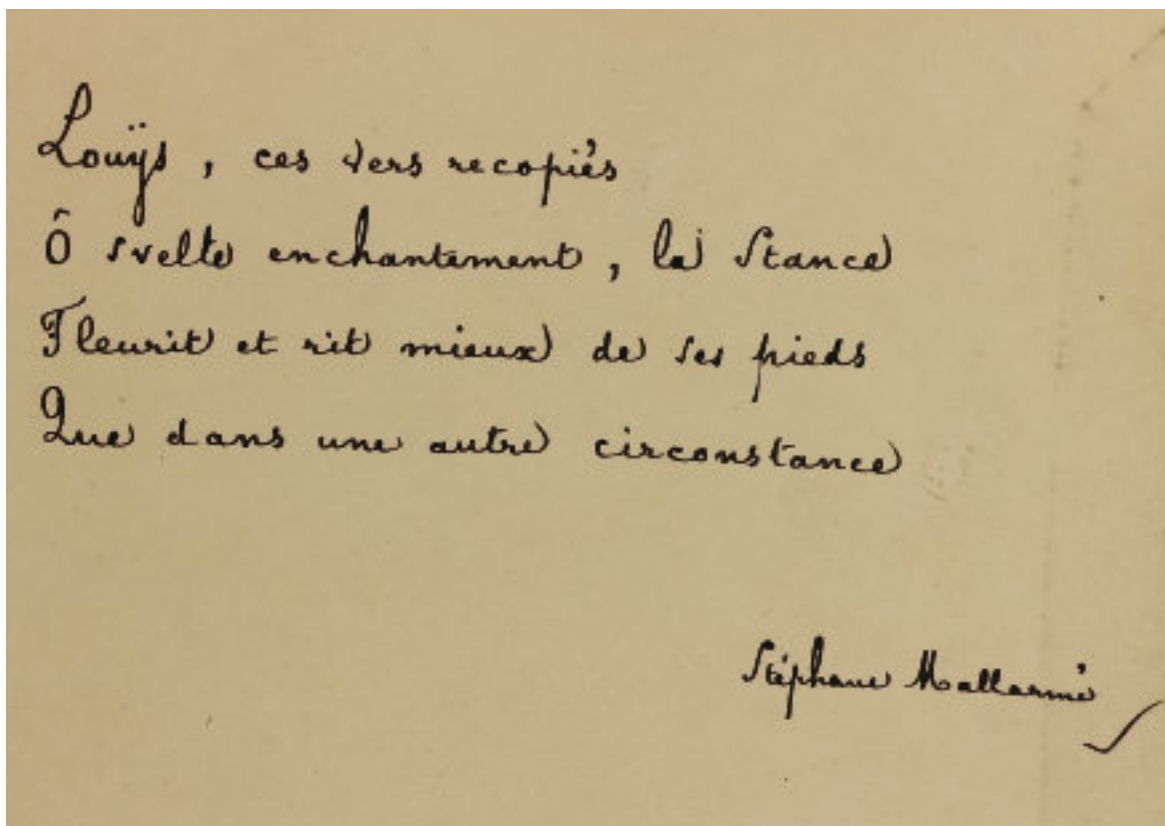 Louÿs, ces vers recopiés
Ô svelte enchantement, la Stance
Fleurit et rit mieux de ses pieds
Que dans une autre circonstance
Stéphane Mallarmé